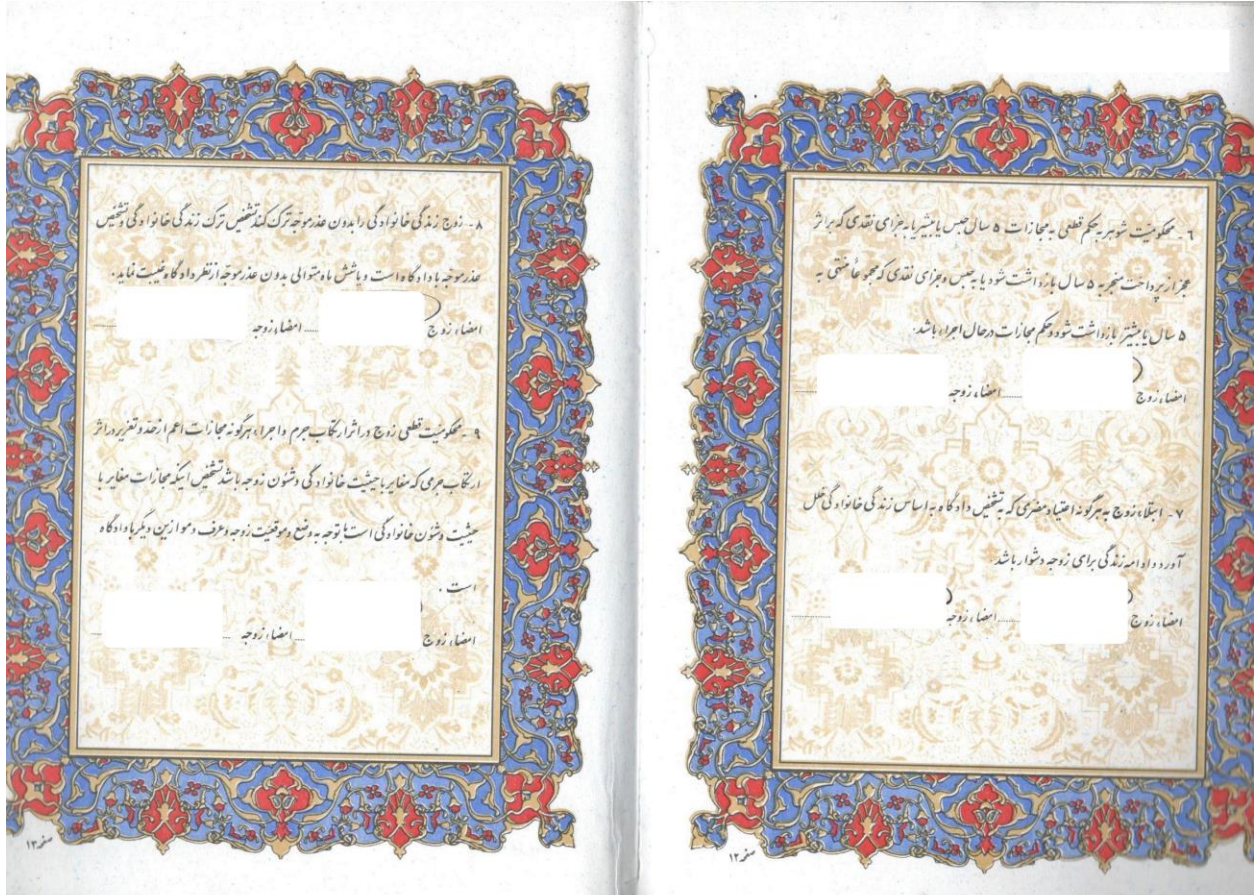 ۶ - محکومیت شوهر به حکم قطعی به مجازات ۵ سال حبس یا بیشتر یا به جزای نقدی که بر اثر
عجز از پرداخت منجر به ۵ سال بازداشت شود یا به حبس و جزای نقدی که مجموعاً منتهی به
۵ سال یا بیشتر بازداشت شود و حکم مجازات در حال اجراء باشد.
امضاء زوج امضاء زوجه
۷ - ابتلاء زوج به هرگونه اعتیاد مضری که به تشخیص دادگاه به اساس زندگی خانوادگی خلل
آورد و ادامه زندگی برای زوجه دشوار باشد.
امضاء زوج امضاء زوجه
صفحه ۱۲
۸ - زوج زندگی خانوادگی را بدون عذر موجه ترک کند تشخیص ترک زندگی خانوادگی و تشخیص
عذر موجه با دادگاه است و یا شش ماه متوالی بدون عذر موجه از نظر دادگاه غیبت نماید.
امضاء زوج امضاء زوجه
۹ - محکومیت قطعی زوج در اثر ارتکاب جرم و اجراء هرگونه مجازات اعم از حد و تعزیر در اثر
ارتکاب جرمی که مغایر با حیثیت خانوادگی و شئون زوجه باشد تشخیص اینکه مجازات مغایر با
حیثیت و شئون خانوادگی است با توجه به وضع و موقعیت زوجه و عرف و موازین دیگر با دادگاه
است.
امضاء زوج امضاء زوجه
صفحه ۱۳